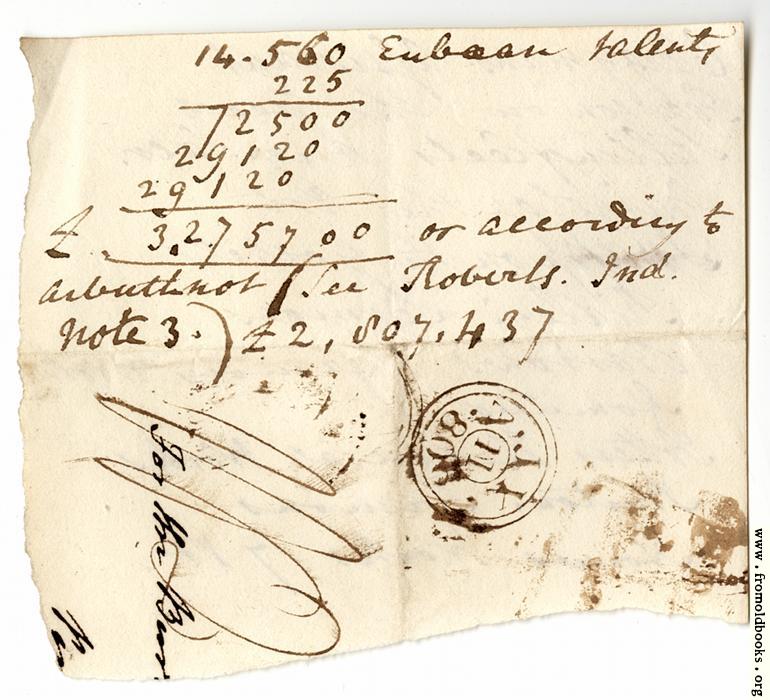 14.560 Eubœan talents
225
72500
29120
29120
£ 3.275700 or according to
Arbuthnot (See Roberts. Ind.
note 3.) £2,807,437
For the
www.fromoldbooks.org